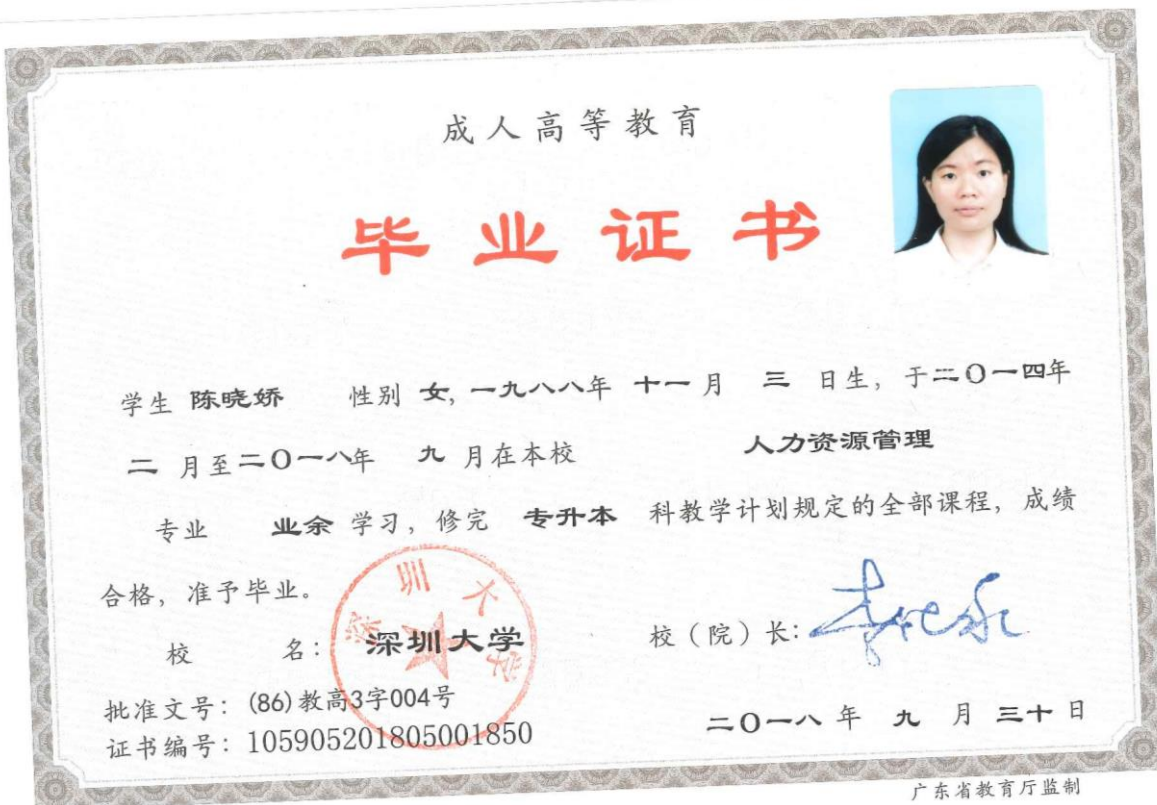 成人高等教育
毕业证书
学生 陈晓娇 性别 女, 一九八八年 十一 月 三 日生, 于二〇一四年
二 月至二〇一八年 九 月在本校 人力资源管理
专业 业余 学习, 修完 专升本 科教学计划规定的全部课程, 成绩
合格, 准予毕业。
深圳大学
校 名: 深圳大学 校(院)长:
批准文号: (86)教高3字004号
证书编号: 105905201805001850
二〇一八 年 九 月 三十 日
广东省教育厅监制